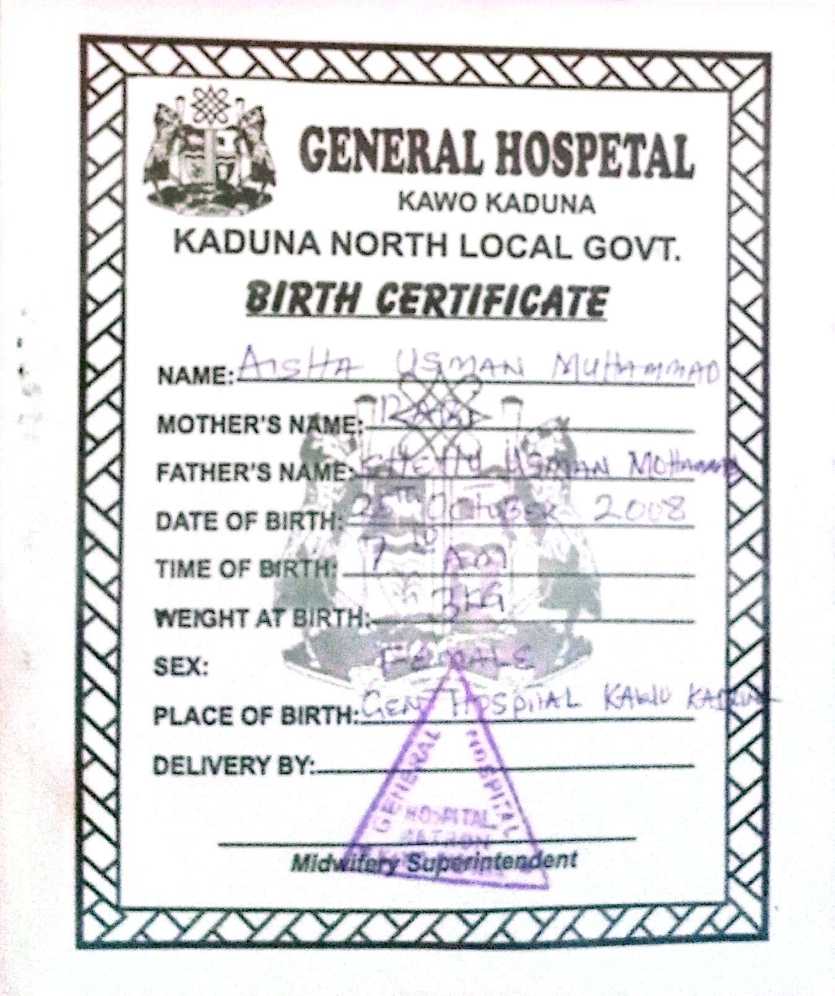 GENERAL HOSPETAL
KAWO KADUNA
KADUNA NORTH LOCAL GOVT.
BIRTH CERTIFICATE
NAME: AISHA USMAN MUHAMMAD
MOTHER'S NAME:
FATHER'S NAME: SHEHU USMAN MOHAMMED
DATE OF BIRTH: 25TH OCTOBER 2008
TIME OF BIRTH: 7 10 AM
WEIGHT AT BIRTH: 3KG
SEX: FEMALE
PLACE OF BIRTH: GEN HOSPITAL KAWO KADUNA
DELIVERY BY:
GENERAL HOSPITAL
HOSPITAL
Midwifery Superintendent